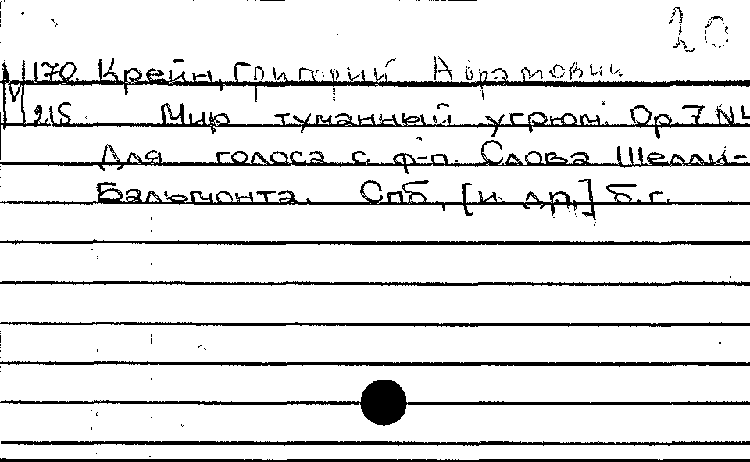 20
М 170. Крейн, Григорий Абрамович
215 Мир туманный угрюм. Ор. 7 №4
Для голоса с ф-п. Слова Шелли-
Бальмонта. Спб, [и др.] б.г.